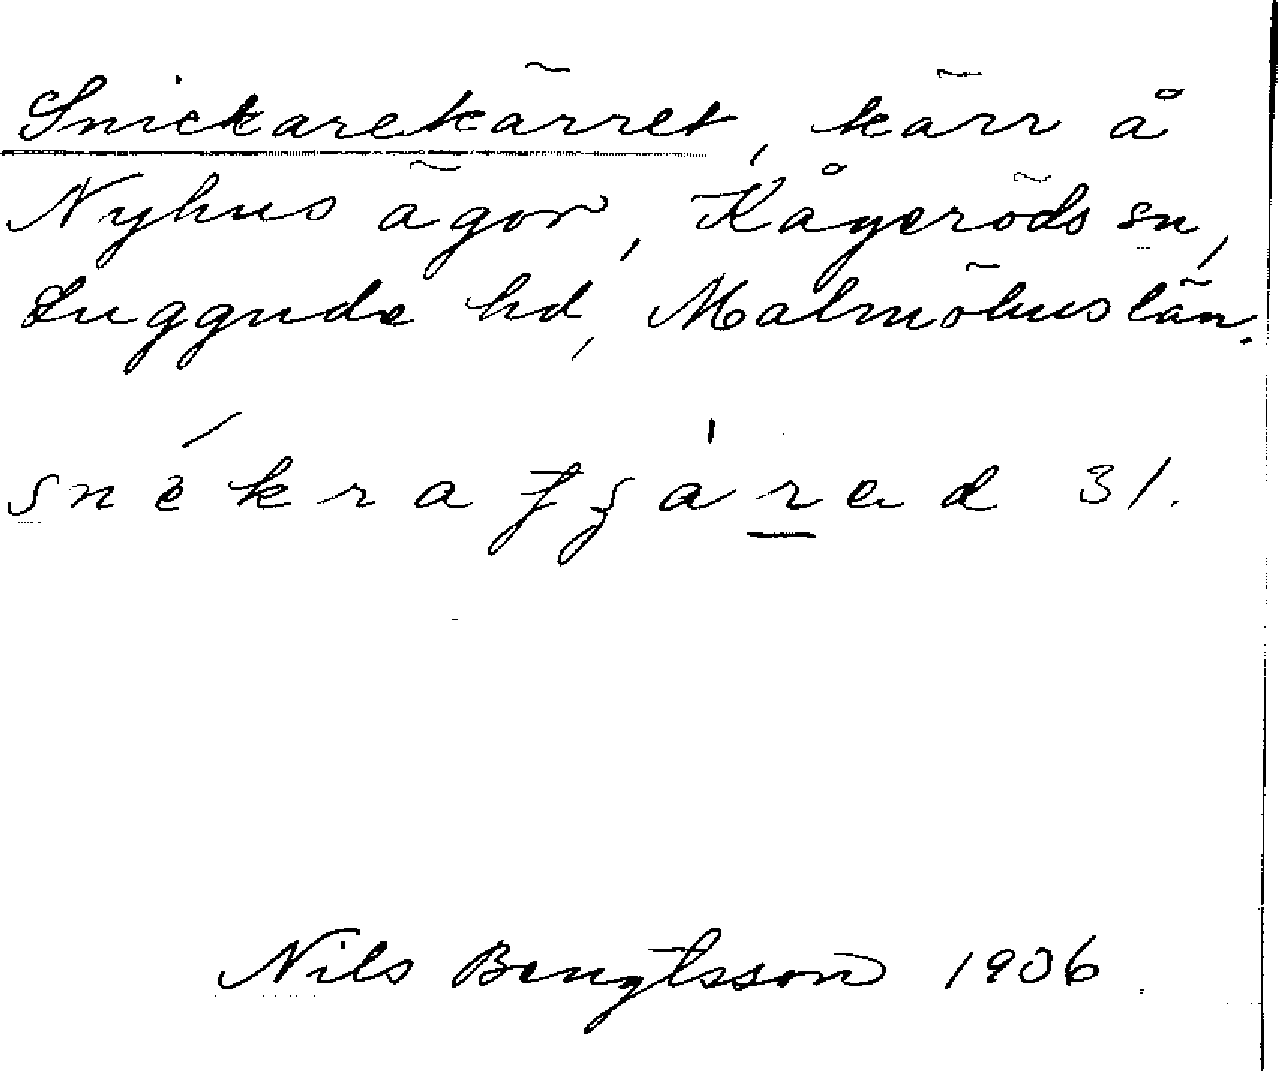 Snickarekärret, kärr å
Nyhus ägor, Kågeröds sn,
Luggude hd, Malmöhus län.
31.
Nils Bengtsson 1906